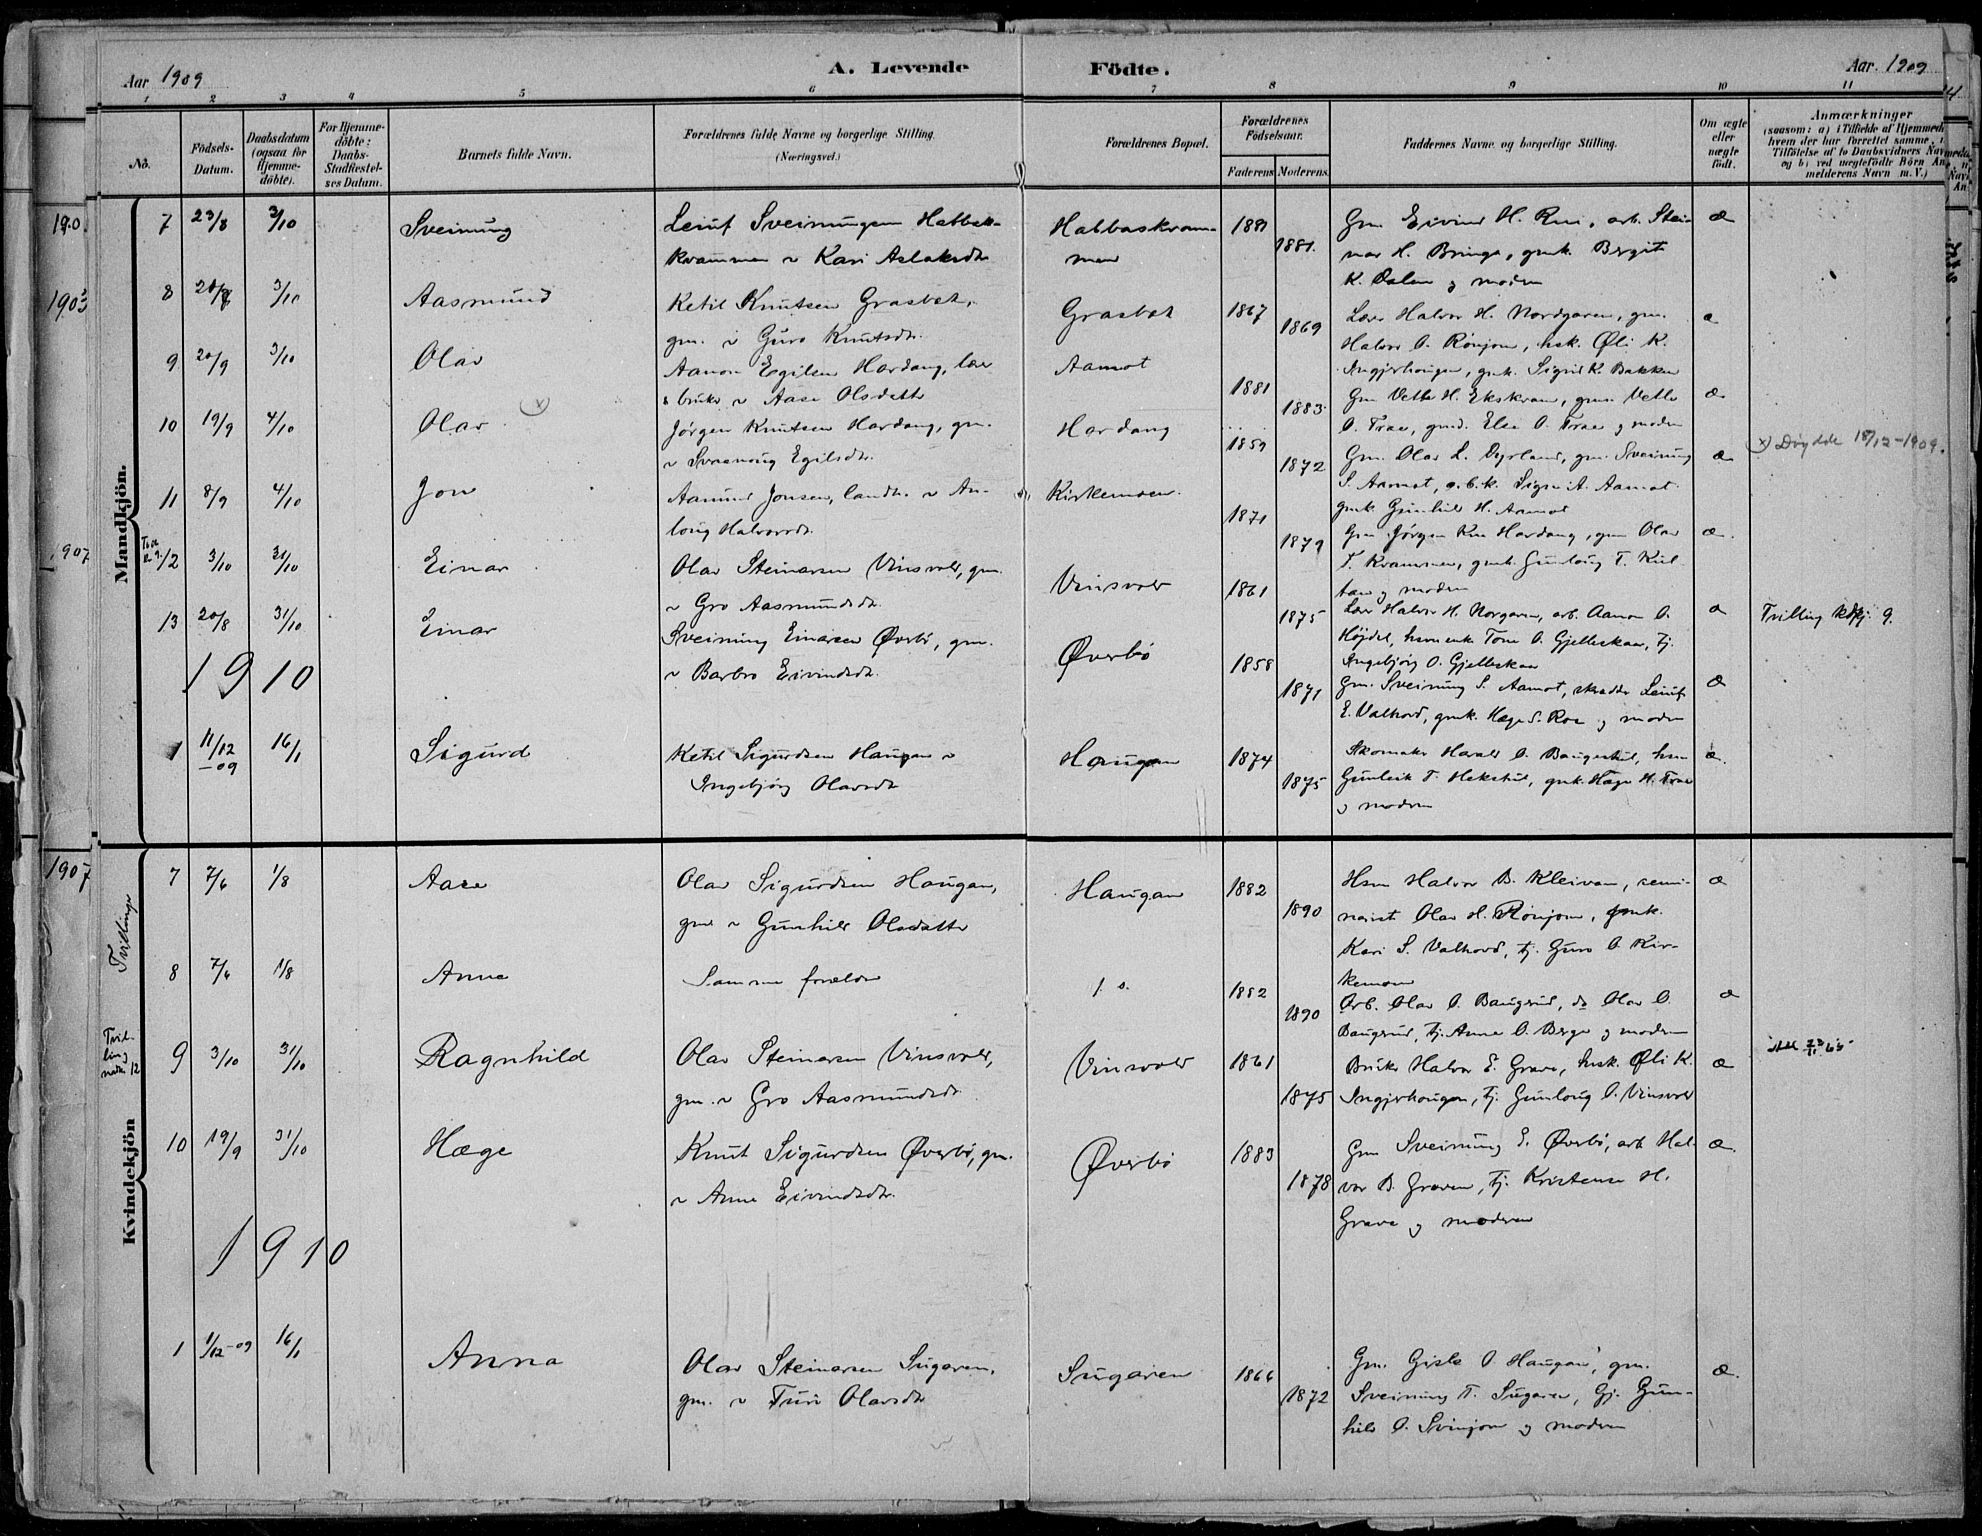 Aar 1909
A. Levende Födte.
Aar. 1909
1 2 3 4 5 6 7 8 9 10 11
Nö.
Födsels-Datum.
Daabsdatum (ogsaa for Hjemme-döbte).
For Hjemme-döbte: Daabs-Stadfæstel-ses Datum.
Barnets fulde Navn.
Forældrenes fulde Navne og borgerlige Stilling.
(Næringsvei.)
Forældrenes Bopæl.
Forældrenes Födselsaar.
Faderens Moderens.
Faddernes Navne og borgerlige Stilling.
Om ægte eller uægte födt.
Anmærkninger
Mandkjön.
7 23/8 3/10 Sveinung
Leiuf Sveinungsen Habbas-
kvammen & Kari Aslaksdtr
Habbaskvam-
men
1881 1881.
Gm. Eivind H. Rui, arb. Stei-
nar H. Bringa, gmk. Bergit
K. Dalen og modren
æ
8 3/10 Aasmund
Ketil Knutsen Grasbek,
gm. & Guro Knutsdtr.
Grasbek
1867 1869
Lær. Halvor H. Nordgaren, gm.
Halvor O. Rönjom, hsk. Øli K.
Ingjerhougen, gmk. Sigrid K. Bakken
æ
9 20/9 3/10 Olav
Aanon Egilsen Hardang, lær
& bruker & Aase Olsdatter
Aamot
1881 1883.
Gm Vetle H. Ekskvam, gm. Vetle
O. Traae, gmd. Else O. Traae og modren
æ
10 19/9 4/10 Olav (x)
Jørgen Knutsen Hardang, gm.
& Svanaug Egilsdtr.
Hardang
1859 1872
Gm. Olav L. Dyrland, gm. Sveinung
S. Aamot, Signe A. Aamot
gmk Gunhild H. Aamot
æ
x) Døydde 18/12-1909.
11 8/9 4/10 Jon
Aamund Jonsen, landh. & An-
laug Halvorsdtr.
Kirkemoen.
1871 1879
Gm Jörgen Kn. Hardang, gm Olav
T. Kvammen, gmk. Gunloug T. Kil-
tan og modren
æ
12 3/10 31/10 Einar
Olav Steinarsen Vinsvold, gm.
& Gro Aasmundsdtr.
Vinsvold
1861 1875
Lær Halvor H. Norgaren, arb. Aanon O.
Høydal, Tone O. Gjelleskaa, tj.
Ingebjörg O. Gjelleskaa
æ
Tvilling kvkj. 9.
13 20/8 31/10 Einar
Sveinung Einarsen Øverbö, gm.
& Barbro Eivindsdtr.
Øverbö
1858 1871
Gm. Sveinung S. Aamot, skrædder Leiuf
E. Valhovd, gmk. Hæge S. Roa og modren
æ
1910
1 11/12 -09 16/1 Sigurd
Ketil Sigurdsen Haugan &
Ingebjörg Olavsdtr
Haugan
1874 1875
Skomaker Harald O. Baugerud, hsm
Gunleik T. Hekstul, gmk. Hæge H. Traae
og modren
æ.
Kvindekjön
Tvillinger
7 7/6 1/8 Aase
Olav Sigurdsen Haugan,
gm & Gunhild Olsdatter
Haugan
1882 1890
Hsm Halvor B. Kleivan, semi-
narist Olav H. Rönjom, gmk.
Kari S. Valhovd, tj. Guro O. Kir-
kemoen
æ
8 7/6 1/8 Anne
Samme forældre
1882 1890
Arb. Olav O. Baugerud, do Olav O.
Baugerud, tj. Anne O. Berge og modren
æ
Tvil-
ling
12
9 3/10 31/10 Ragnhild
Olav Steinarsen Vinsvold,
gm. & Gro Aasmundsdtr
Vinsvold
1861 1875
Bruker Halvor E. Grave, hsk. Øli K.
Ingjerhougen, tj. Gunloug O. Vinsvold
æ
10 19/9 31/10 Hæge
Knut Sigurdsen Øverbö, gm.
& Anne Eivindsdtr.
Øverbö
1883 1878
Gm Sveinung E. Øverbö, arb. Hal-
vor B. Graven, tj. Kristense H.
Grave og modren
æ.
1910
1 1/12-09 16/1 Anna
Olav Steinarsen Sugaren,
gm. & Turi Olavsdtr
Sugaren
1866 1872
Gm. Gisle O. Haugan, gm.
Sveinung T. Sugaren, Gj. Gun-
hild O. Svinjom og modren
æ.
1903
1907
1907